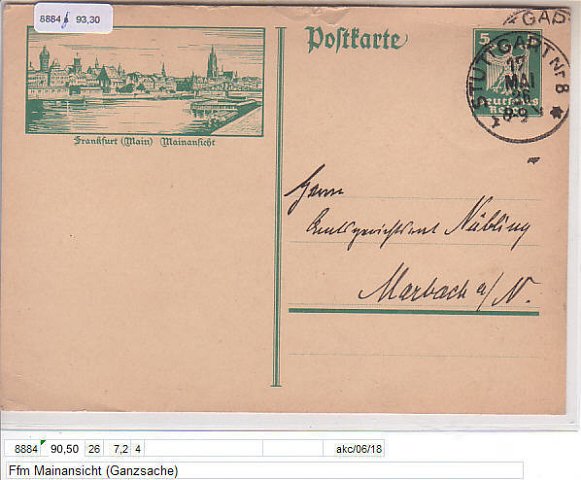 8884 b 93,30
Postkarte
GAR
5 5
STUTTGART Nr 8
17
MAI
26
8-9
Deutsches
Reich
Frankfurt (Main) Mainansicht
Herrn
Amtsgerichtsrat Nübling
Marbach a/N.
8884 90,50 26 7,2 4 akc/06/18
Ffm Mainansicht (Ganzsache)